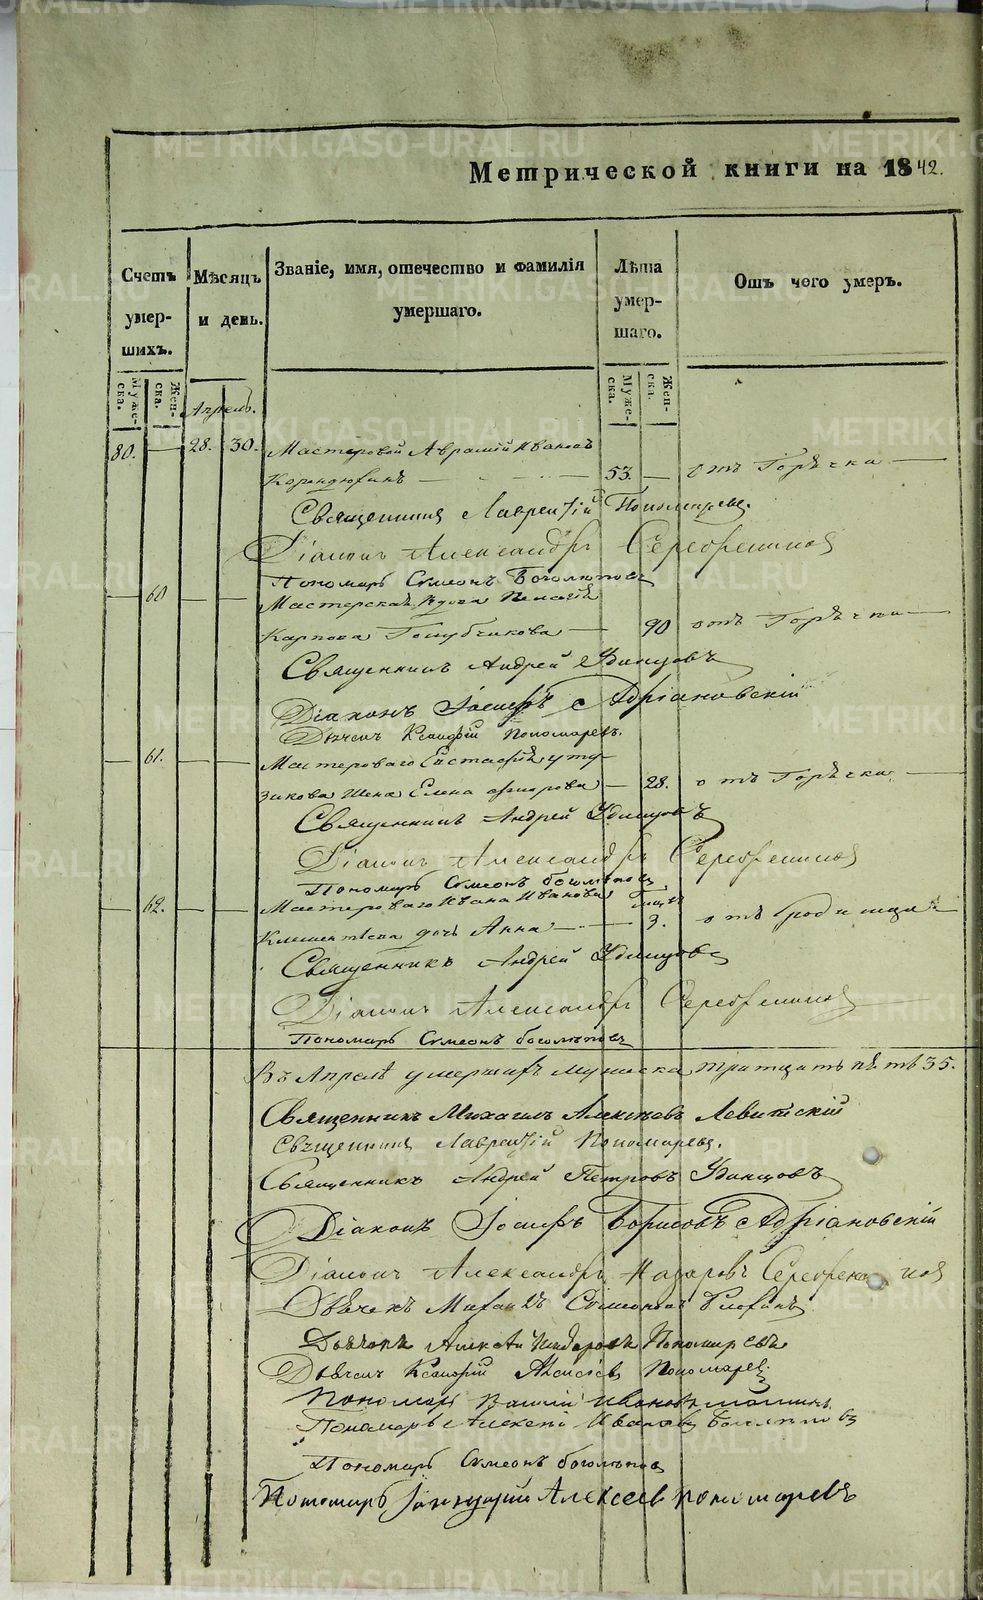 Метрической книги на 1842.
Счетъ умер-
шихъ.
Мѣсяцъ
и день.
Званіе, имя, отечество и фамилія
умершаго.
Лѣта
умер-
шаго.
Отъ чего умеръ.
Муже-
ска.
Жен-
ска.
Муже-
ска.
Жен-
ска.
Апрель.
80. — 28. 30. Мастеровой Аврамій Ивановъ
53. — отъ Горѣчки —
Священникъ Лаврентій Пономаревъ.
Діаконъ Александръ Серебрениковъ
Пономарь Симеонъ Боголѣповъ
60 Мастерская Вдова
Карпова Голубчикова — 90 отъ Горѣчки —
Священникъ Андрей Удинцовъ
Діаконъ Іосифъ Адріановскій
Дьячекъ Пономаревъ.
61. Мастероваго
Жена Елена — 28. отъ Горѣчки —
Священникъ Андрей Удинцовъ
Діаконъ Александръ Серебрениковъ
Пономарь Симеонъ Боголѣповъ
62. Мастероваго Ивана Иванова
Клементьева дочь Анна — 3. отъ родимца —
Священникъ Андрей Удинцовъ
Діаконъ Александръ Серебрениковъ
Пономарь Симеонъ Боголѣповъ
Въ Апрелѣ умершихъ мужеска тритцать пѣть 35.
Священникъ Михаилъ Алексѣевъ Левитскій
Священникъ Лаврентій Пономаревъ.
Священникъ Андрей Петровъ Удинцовъ
Діаконъ Іосифъ Борисовъ Адріановскій
Діаконъ Александръ Назаровъ Серебрениковъ
Дьячекъ Михаилъ Симеоновъ
Дьячекъ Пономаревъ
Дьячекъ Алексіевъ Пономаревъ
Пономарь Ивановъ
Пономарь Алексей Ивановъ Боголѣповъ
Пономарь Симеонъ Боголѣповъ
Пономарь Іаннуарій Алексеевъ Пономаревъ
METRIKI.GASO-URAL.RU